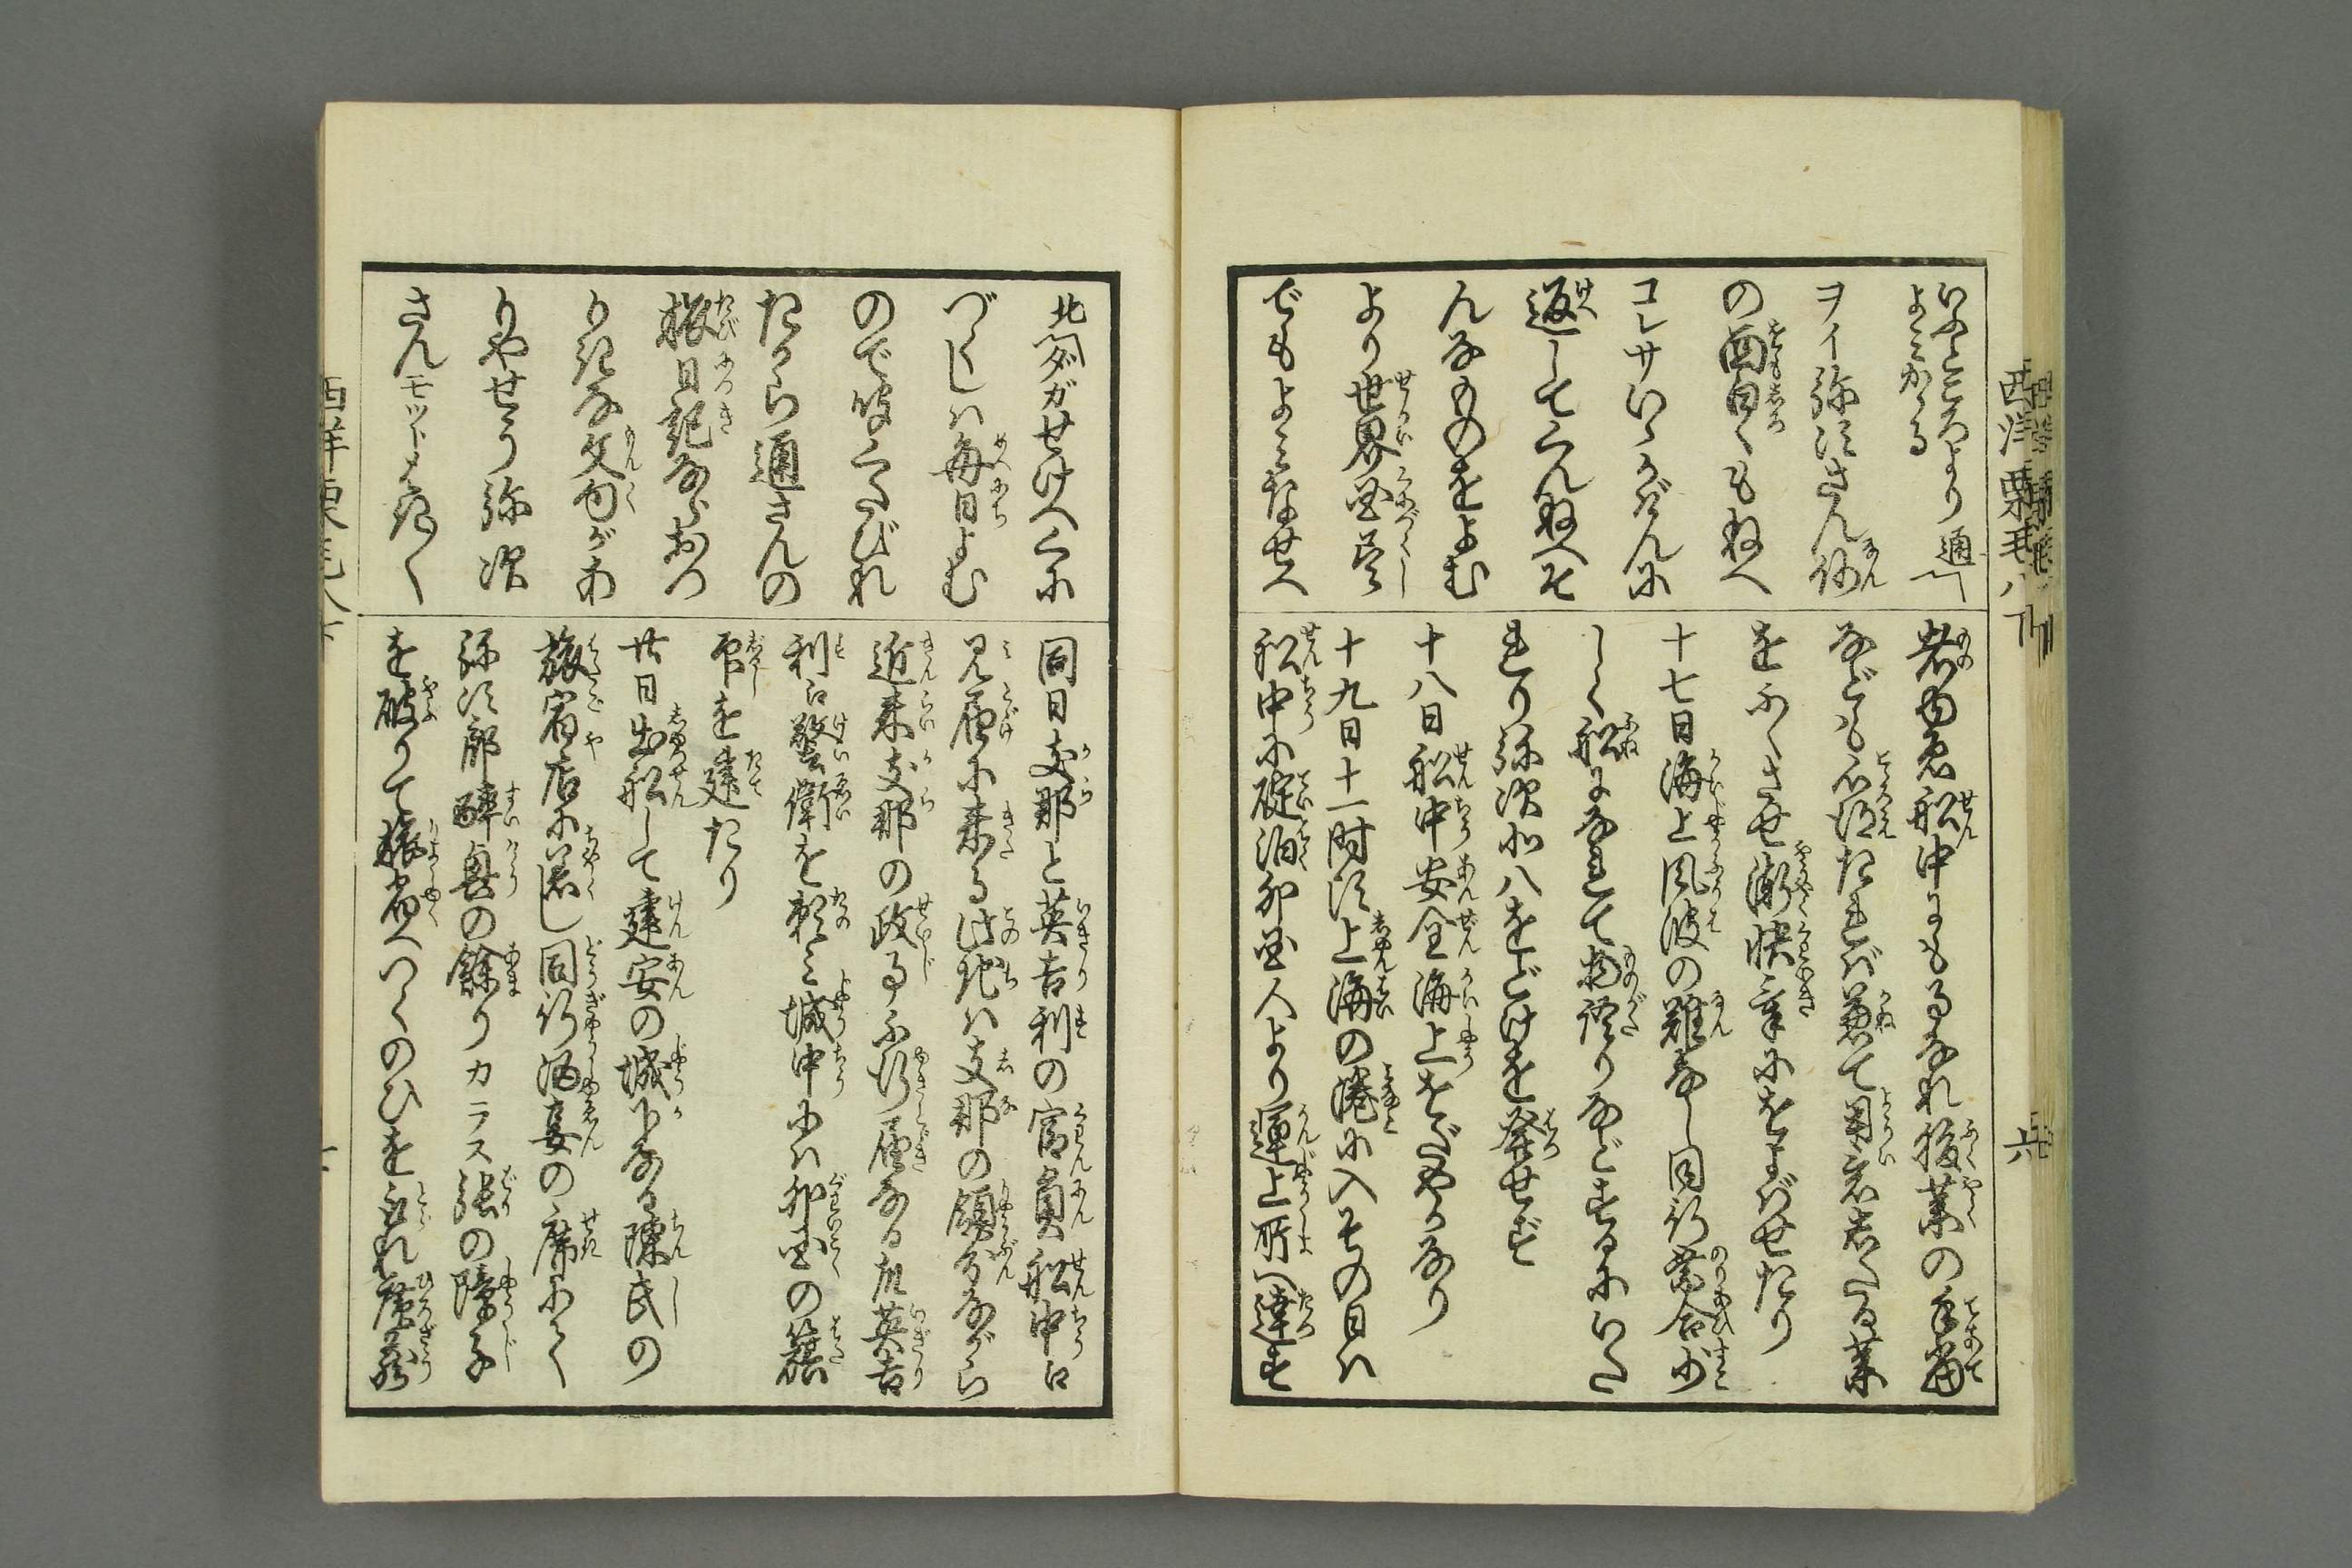 西洋栗毛八下
六
いふところより 通
よみかゝる
ヲイ弥次さん何
の面白くもねへ
コレサいゝかげんに
返してくんねへそ
んなものをよむ
より世界国尽
でもよみなせへ
者ゆゑ船中にもなれ服薬の手当
なども心得たれバ兼て用意したる薬
をふくさせ漸快方におよばせたり
十七日海上風波の難なし同行乗合少
しく船になれて物語りなどするにいた
れり弥次北八をどけを発せず
十八日船中安全海上をだやかなり
十九日十一時頃上海の港に入その日ハ
船中に碇泊外国人より運上所へ達す
北 ダガせけへくに
づくしハ毎日よむ
のでくたびれ
たから通さんの
旅日記なぞおつ
りきな文句があ
りやせう 弥次
さんモツトダ
同日支那と英吉利の官員船中に
見届に来る此地ハ支那の領分ながら
近来支那の政事不行届なる故英吉
利に警衛を頼ミ城中にハ外国の籏
印を建たり
廿日出船して建安の城下なる陳氏の
旅宿店に着し同行酒宴の席にて
弥次郎酔興の餘りカラス張の障子
を破りて旅宿へいくのひをとられ